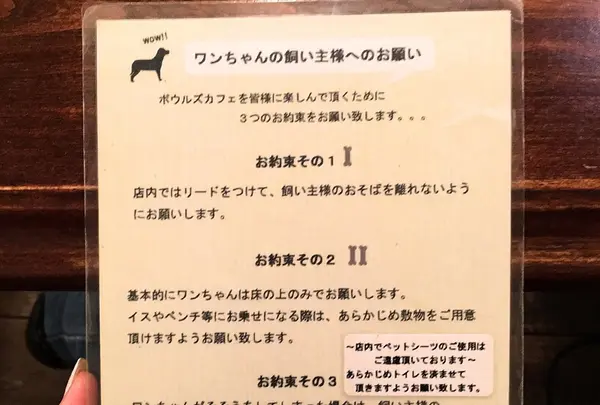 wow!!
ワンちゃんの飼い主様へのお願い
ボウルズカフェを皆様に楽しんで頂くために
３つのお約束をお願い致します。。。
お約束その１
店内ではリードをつけて、飼い主様のおそばを離れないよう
にお願いします。
お約束その２
基本的にワンちゃんは床の上のみでお願いします。
イスやベンチ等にお乗せになる際は、あらかじめ敷物をご用意
頂けますようお願い致します。
～店内でペットシーツのご使用は
ご遠慮頂いております～
あらかじめトイレを済ませて
頂きますようお願い致します。
お約束その３
ワンちゃんがそそうをしてしまった場合は、飼い主様の